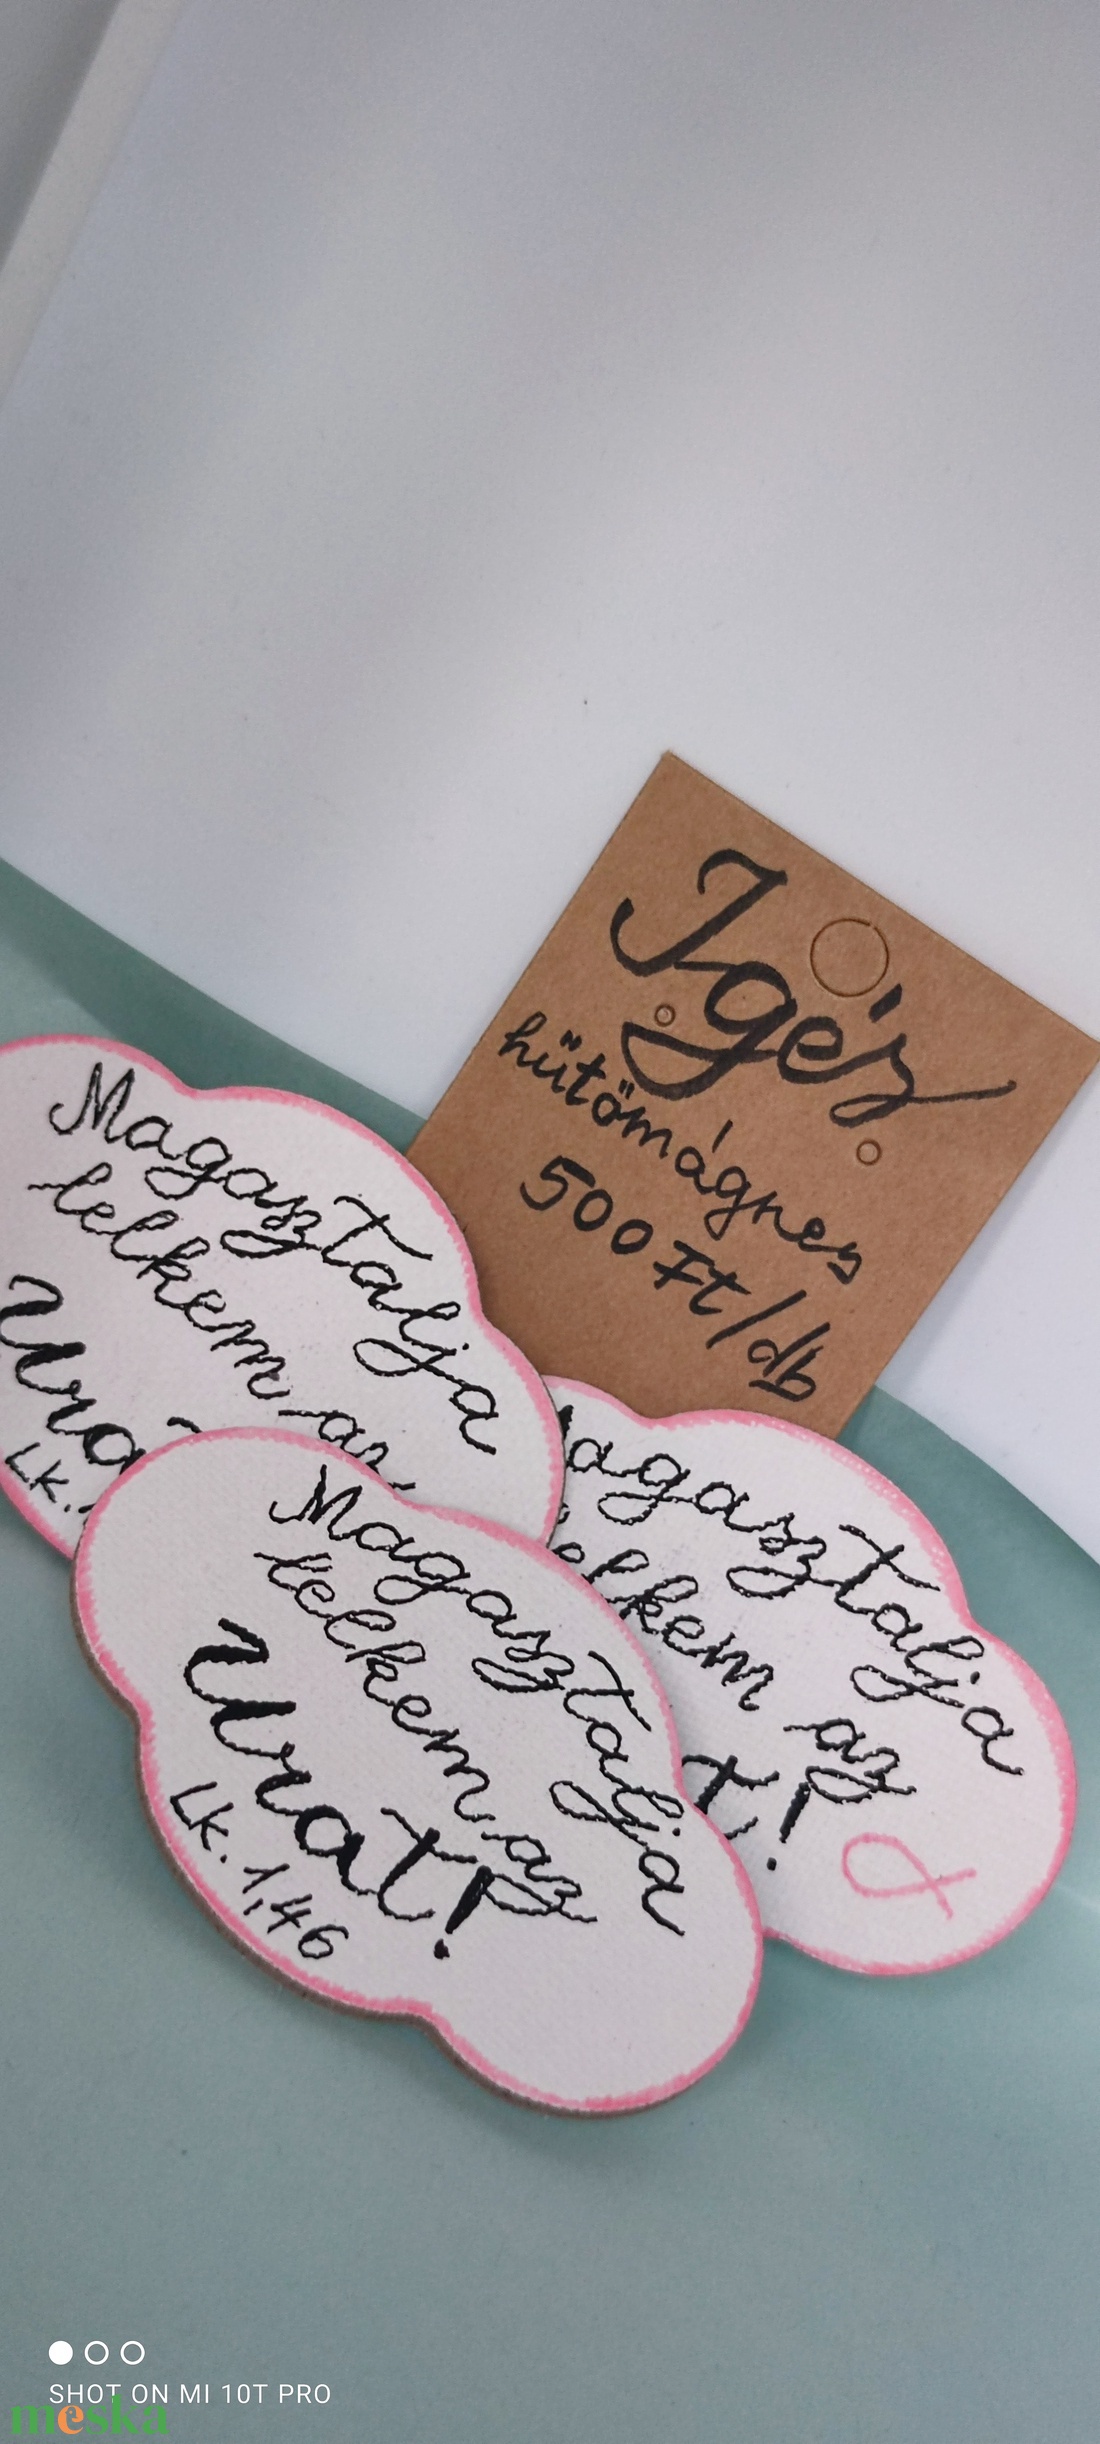 Igés
hűtőmágnes
500 Ft/db
Magasztalja
lelkem az
Urat
Lk.
agasztalja
elkem az
t!
Magasztalja
lelkem az
Urat!
Lk. 1,46
SHOT ON MI 10T PRO
meska